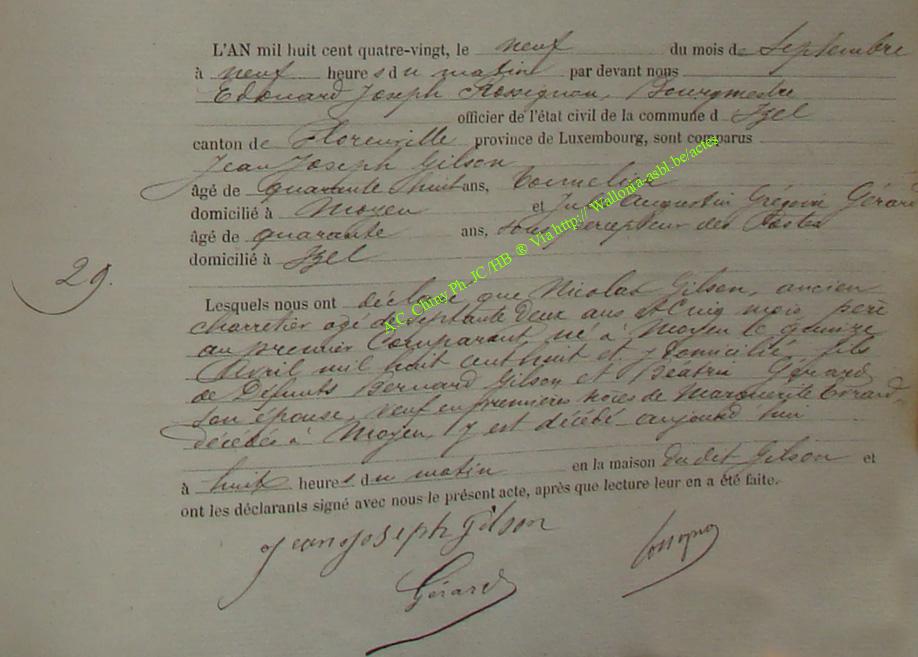 L'AN mil huit cent quatre-vingt, le neuf du mois de Septembre
à neuf heures du matin par devant nous
Edouard Joseph Rossignon, Bourgmestre
officier de l'état civil de la commune d Izel
canton de Florenville province de Luxembourg, sont comparus
Jean Joseph Gilson
âgé de quarante huit ans, tonnelier
domicilié à Moyen et Augustin Grégoire Gérard
âgé de quarante ans, sous percepteur des Postes
domicilié à Izel
29.
Lesquels nous ont déclaré que Nicolas Gilson, ancien
charretier agé de septante deux ans et cinq mois, père
au premier Comparant, né à Moyen le quinze
Avril mil huit cent huit et y domicilié, fils
de Défunts Bernard Gilson et Beatrix Gérard
son épouse, veuf en premières noces de Marguerite
décédée à Moyen, y est décédé aujourd'hui
à huit heures du matin en la maison du dit Gilson et
ont les déclarants signé avec nous le présent acte, après que lecture leur en a été faite.
Jean Joseph Gilson
Rossignon
Gérard
A.C. Chiny Ph. JC/HB ® Via http://Wallonia-asbl.be/actes